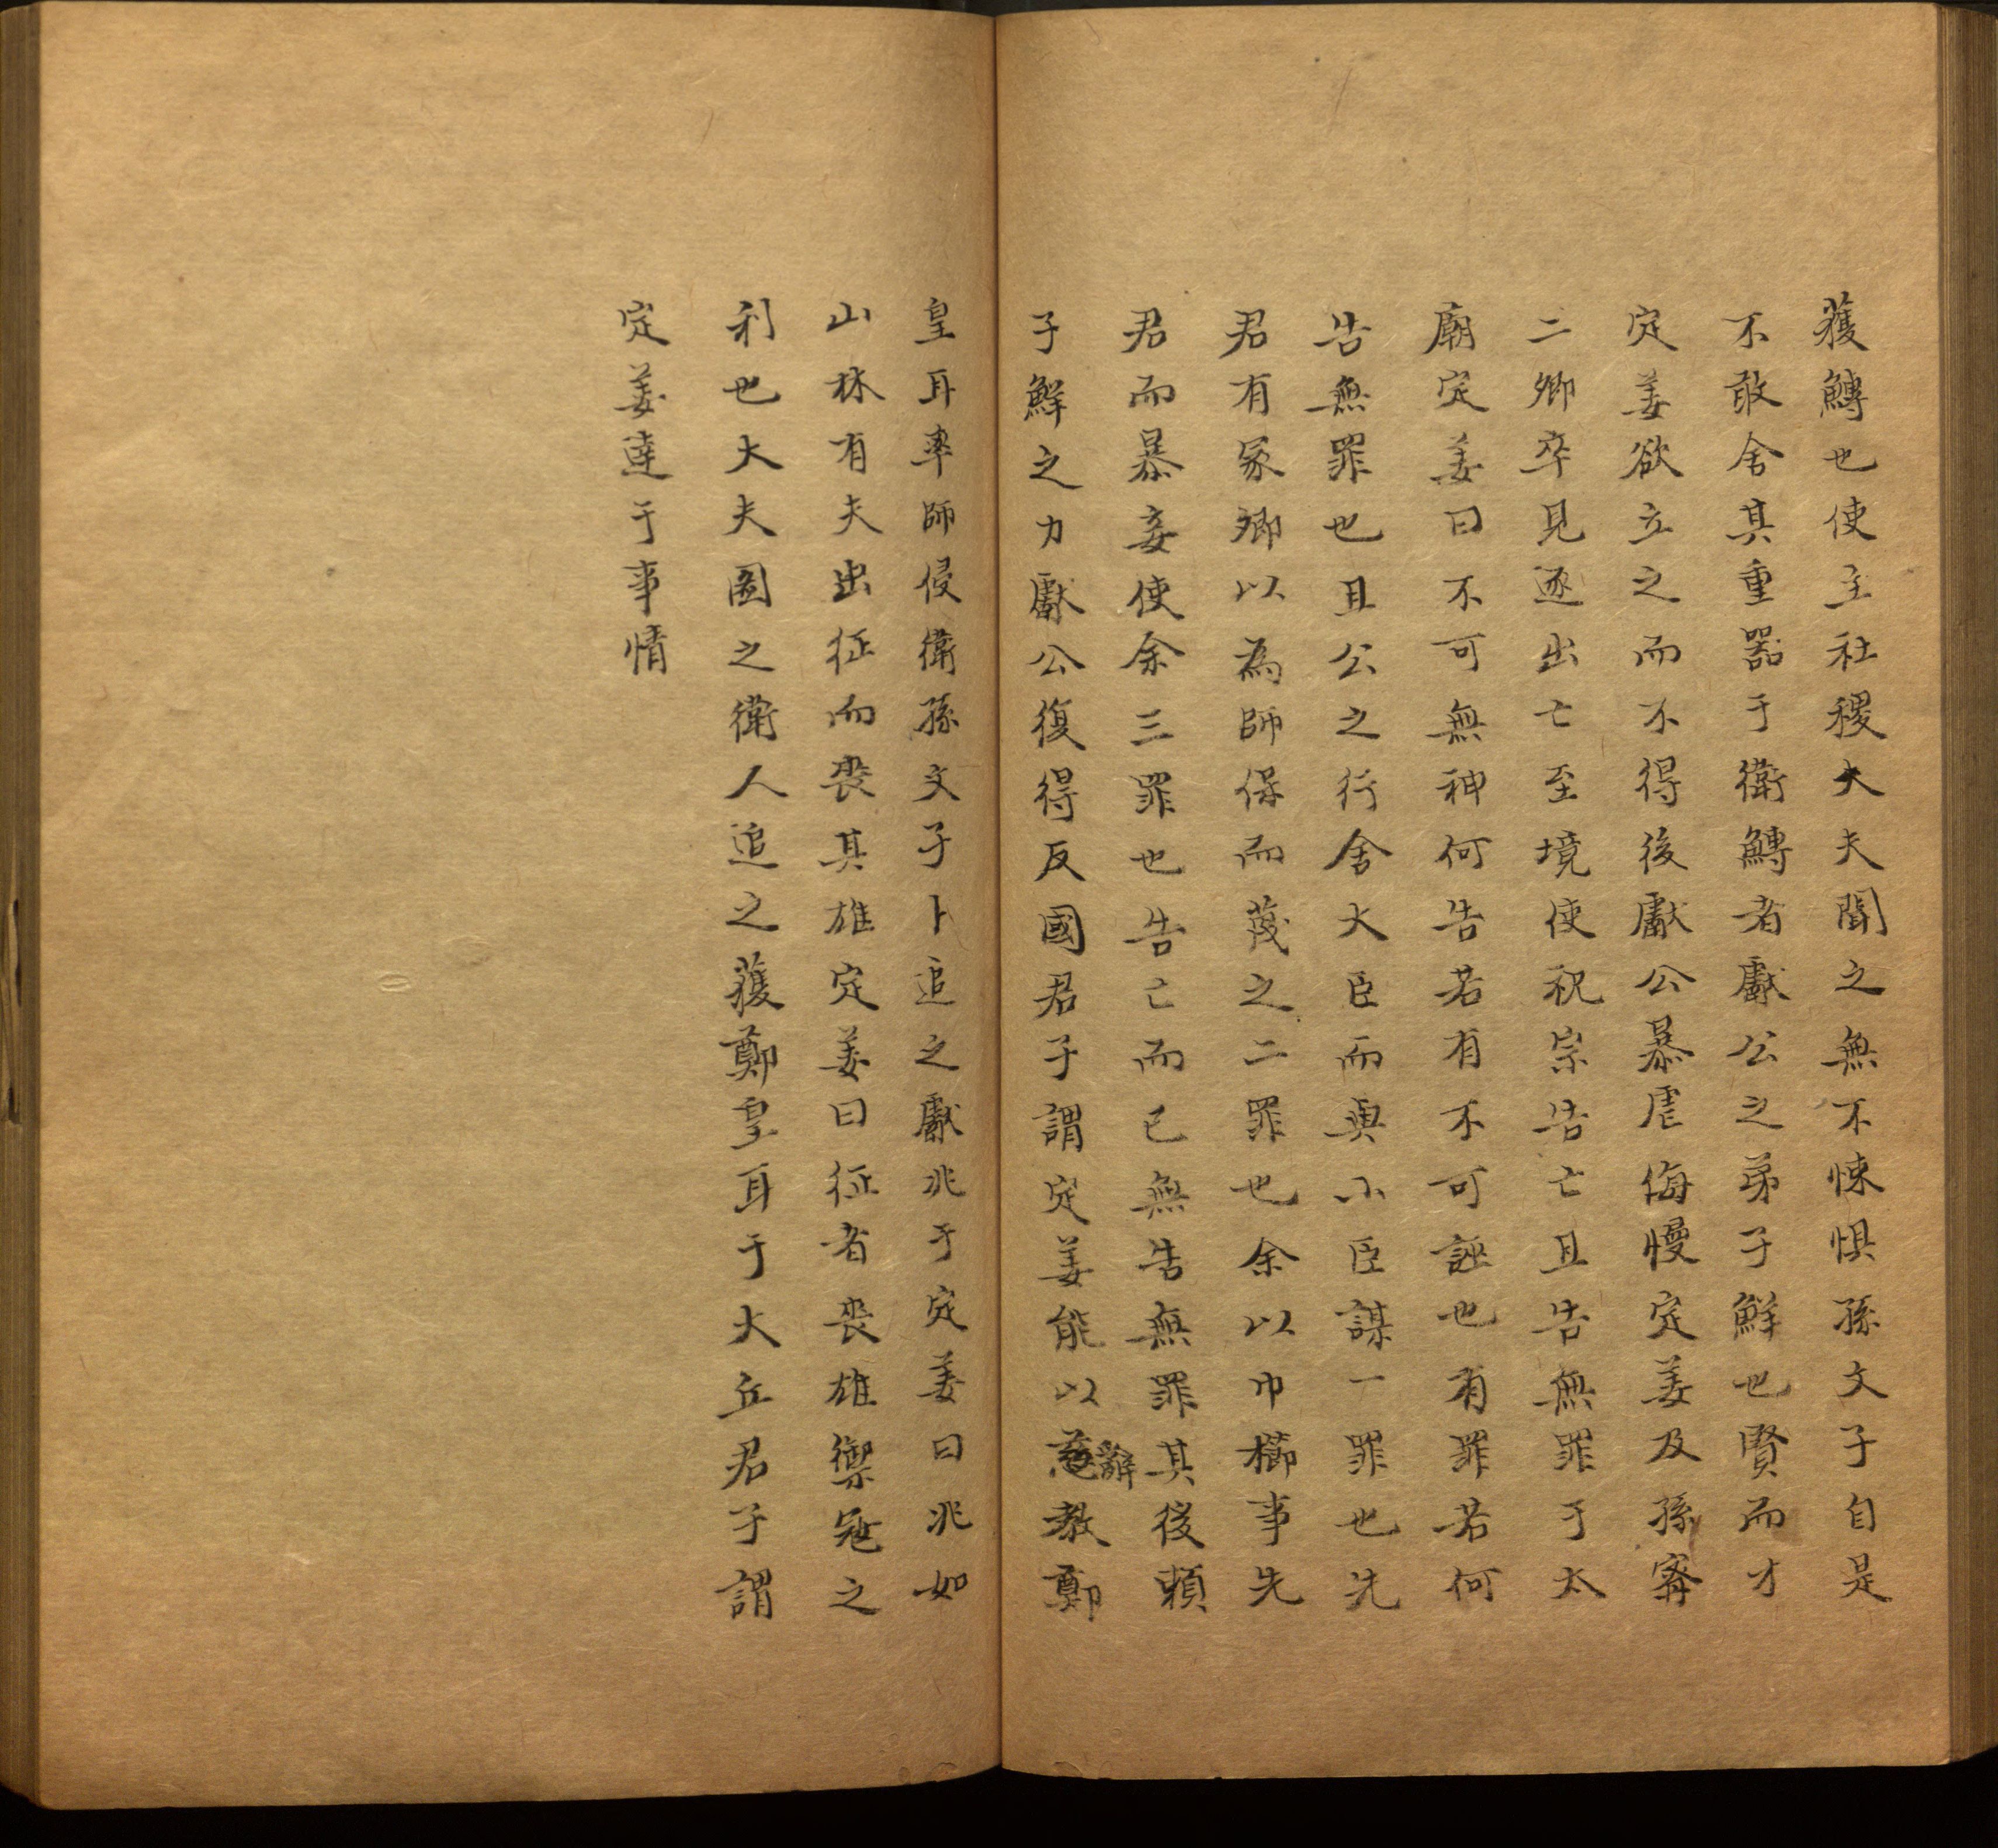 獲鱄也使主社稷大夫聞之無不悚惧孫文子自是
不敢舍其重器于衛鱄者獻公之弟子鮮也賢而才
定姜欲立之而不得後獻公暴虐侮慢定姜及孫甯
二卿卒見逐出亡至境使祝宗告亡且告無罪于太
廟定姜曰不可無神何告若有不可誣也有罪若何
告無罪也且公之行舍大臣而與小臣謀一罪也先
君有冢卿以為師保而蔑之二罪也余以巾櫛事先
君而暴妾使余三罪也告亡而已無告無罪其後頼
子鮮之力獻公復得反國君子謂定姜能以辭教鄭
皇耳率師侵衛孫文子卜追之獻兆于定姜曰兆如
山林有夫出征而喪其雄定姜曰征者喪雄禦冦之
利也大夫圖之衛人追之獲鄭皇耳于大丘君子謂
定姜達于事情